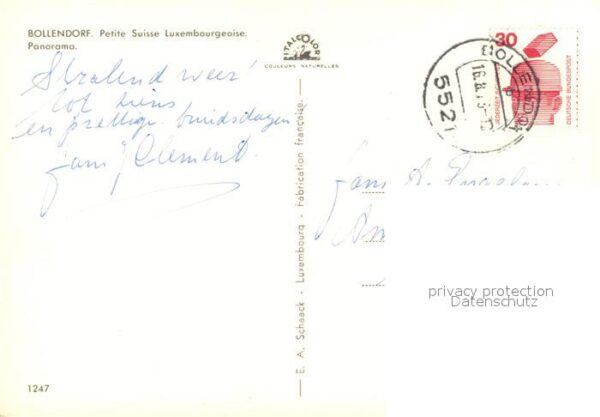 BOLLENDORF. Petite Suisse Luxembourgeoise.
Panorama.
ITALCOLOR
COULEURS NATURELLES
Stralend weer
tot ziens
en prettige
fam J Clement.
E. A. Schaack - Luxembourg - Fabrication française
1247
30
DEUTSCHE BUNDESPOST
BOLLENDORF
16.8.
5521
fam. A.
privacy protection
Datenschutz